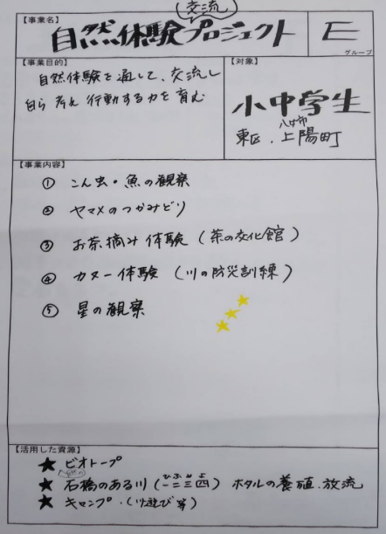 【事業名】
交流
自然体験プロジェクト
E
グループ
【事業目的】
自然体験を通して、交流し
自ら考え行動する力を育む
【対象】
小中学生
八女市
東区、上陽町
【事業内容】
① こん虫・魚の観察
② ヤマメのつかみどり
③ お茶摘み体験(茶の文化館)
④ カヌー体験(川の防災訓練)
⑤ 星の観察
【活用した資源】
★ ビオトープ
ひふみよ
★ 石橋のある川(一二三四) ホタルの養殖、放流
★ キャンプ・(川遊び 等)